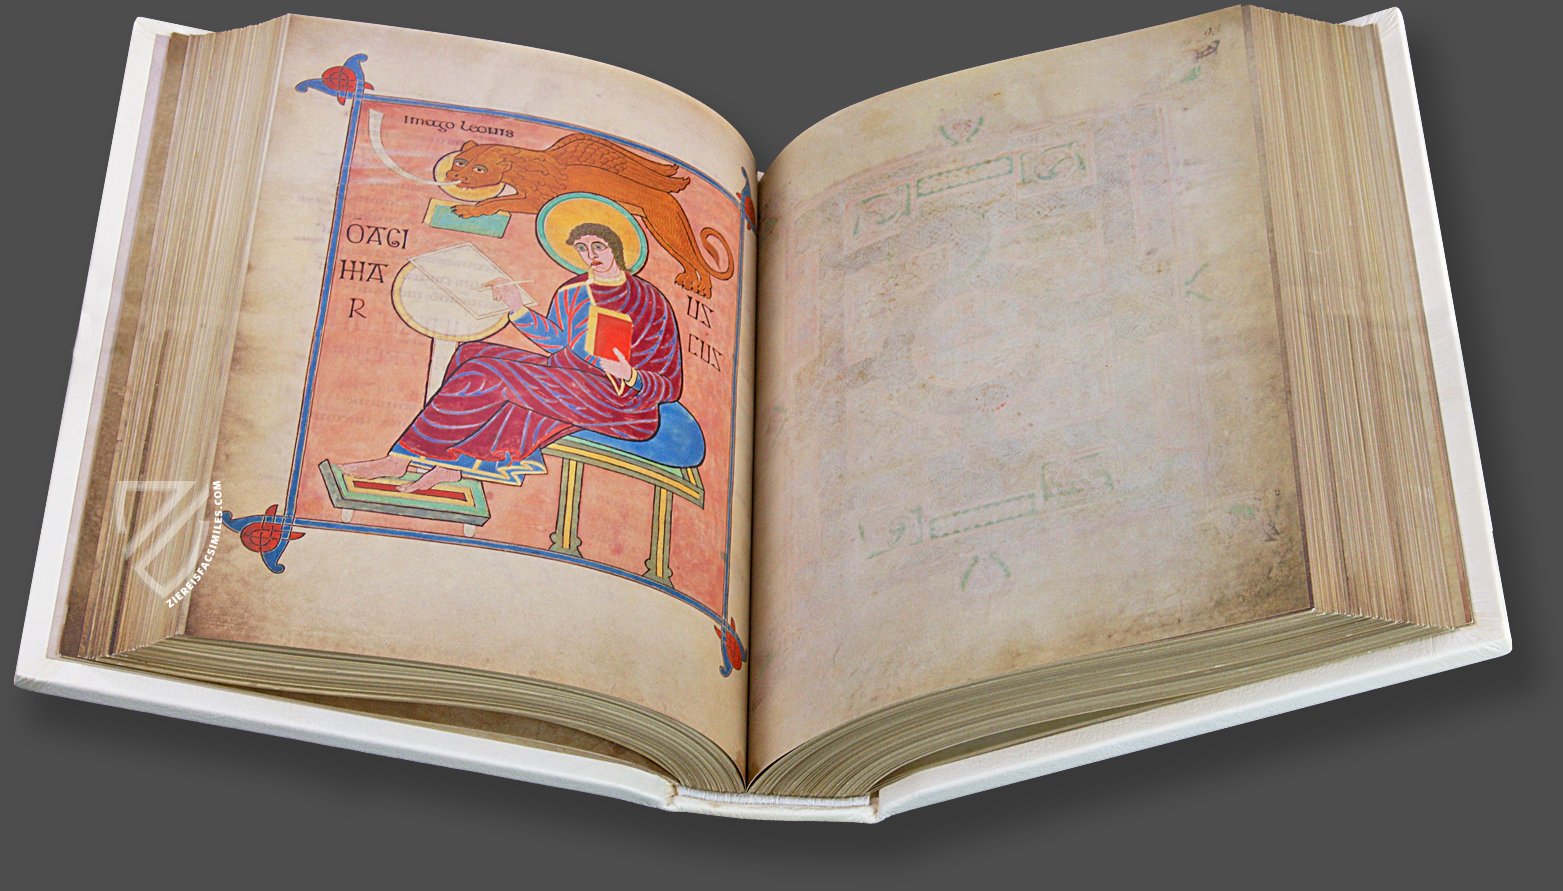 imago leonis
OAGI
HIIA
R
US
CUS
ZIEREISFACSIMILES.COM